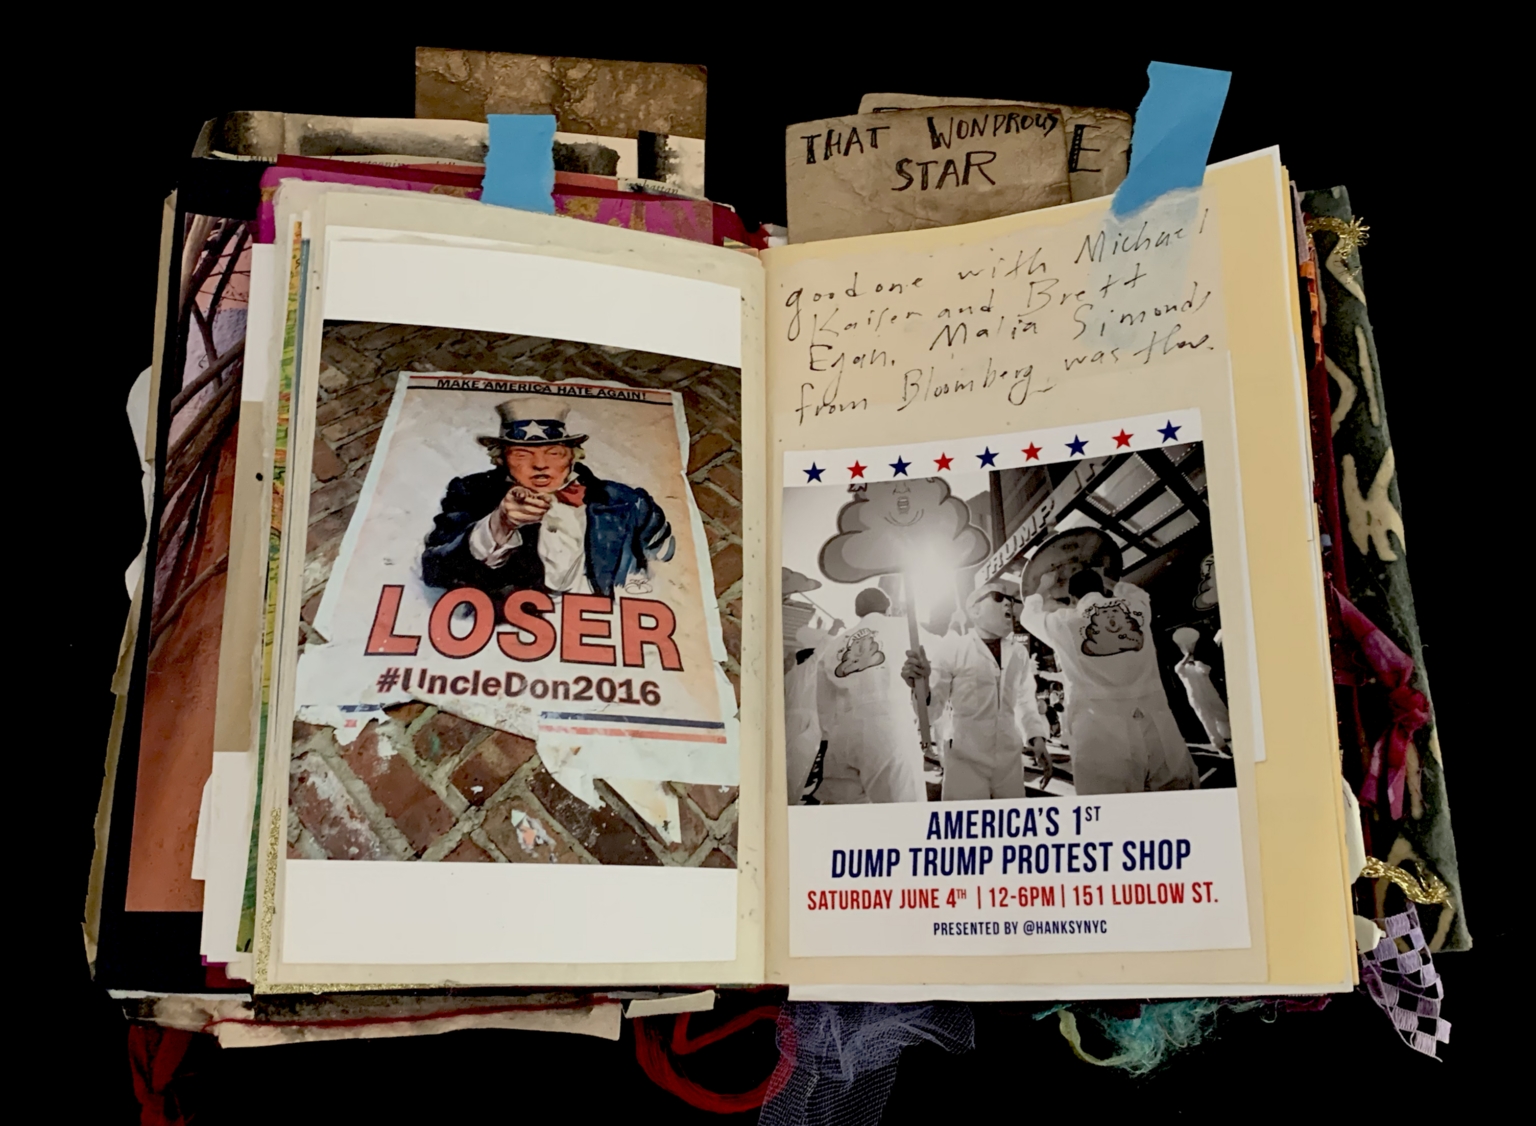 THAT WONDROUS
STAR
E
MAKE AMERICA HATE AGAIN!
LOSER
#UncleDon2016
good one with Michael
Kaiser and Brett
Egan. Malia Simonds
from Bloomberg was there.
TRUMP
AMERICA'S 1ST
DUMP TRUMP PROTEST SHOP
SATURDAY JUNE 4TH | 12-6PM | 151 LUDLOW ST.
PRESENTED BY @HANKSYNYC